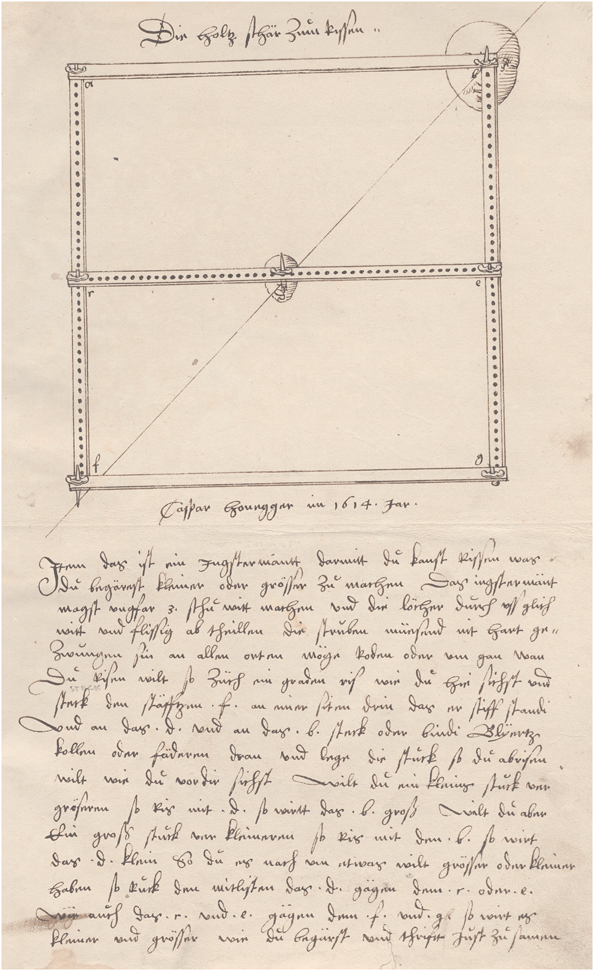 Die holtz schär Zum Rissen
a
b
r
e
f
g
Caspar Honegger im 1614. Jar.
Item das ist ein Ingstermäntt darmitt du kanst Rissen was
du begärest kleiner oder grösser zu machen Das ingstermänt
magst ungfar 3. schu witt machen und die löcher durch uss glich
witt und flissig ab theillen die struben müesend nit hart ge=
zwungen sin an allen orten möge oder um gan wan
Du Risen wilt so Züch ein graden ris wie du hie sichst und
steck den stäfftzen .f. an einer siten drin das er stiff standi
Und an das .d. und an das .b. steck oder bindi Blÿertz
kollen oder fäderen dran und lege die stuck so du abrisen
wilt wie du vor dir sichst Wilt du ein kleins stuck ver
gröseren so Ris mit .d. so wirtt das .b. groß Wilt du aber
Ein gross stuck ver kleineren so Ris mit dem .b. so wirt
das .d. klein So du es nach um etwas wilt grösser oder kleiner
haben so Ruck den mitlisten das .d. gägen dem .r. oder .e.
wie auch das .r. und .e. gägen dem .f. und .g. so wirt es
kleiner und grösser wie du begärst und Just zu samen